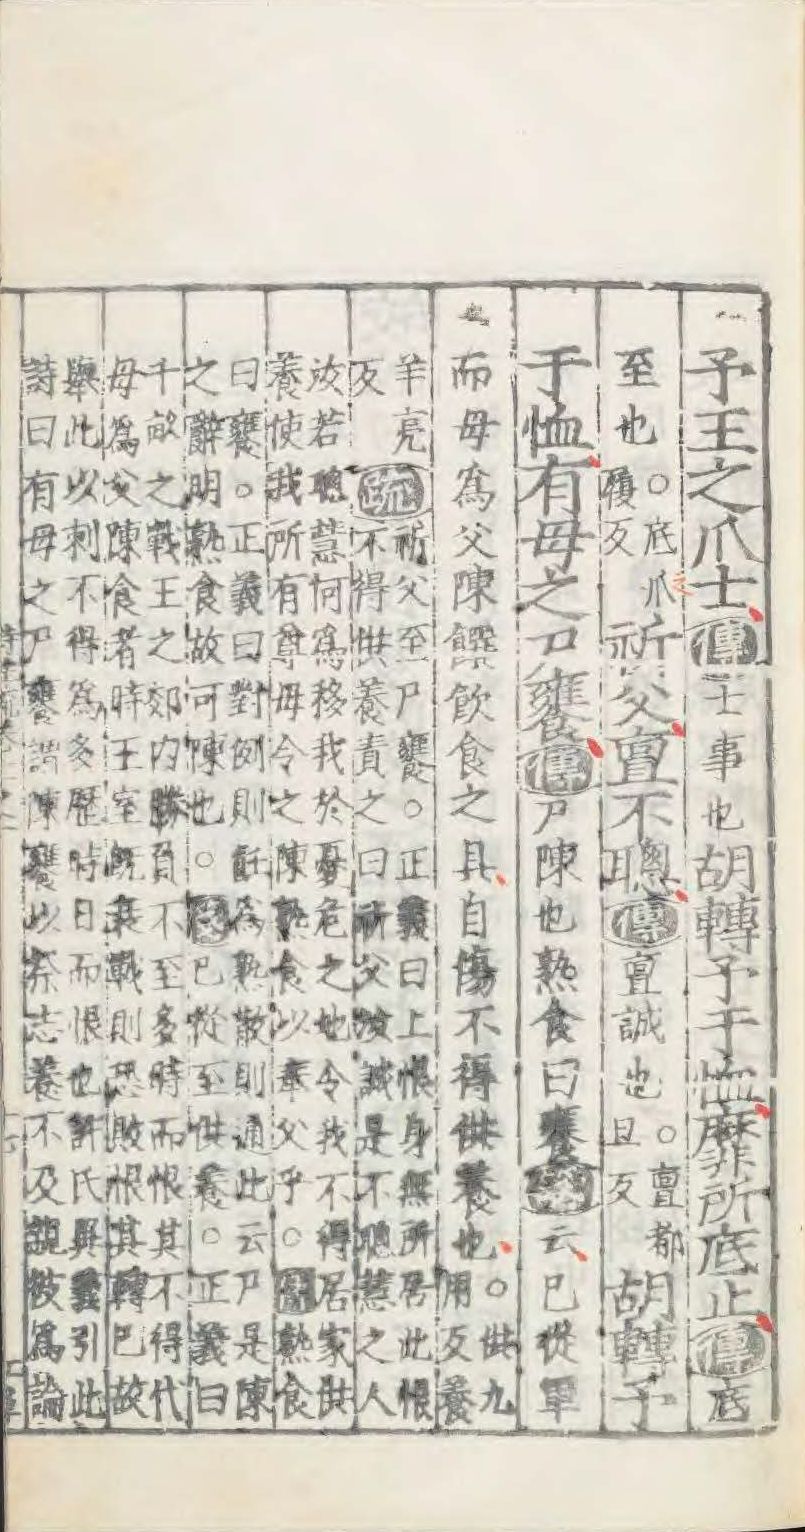 予王之爪士傳士事也胡轉予于恤靡所厎止傳厎
至也○厎爪之履反祈父亶不聰傳亶誠也○亶都且反胡轉予
于恤有母之尸饔傳尸陳也熟食曰饔箋云已從軍
而母為父陳饌飲食之具自傷不得供養也○供九用反養
羊亮反疏祈父至尸饔○正義曰上恨身無所居此恨
不得供養責之曰祈父汝誠是不聰慧之人
汝若聰慧何為移我於憂危之地令我不得居家供
養使我所有尊母令之陳熟食以奉父乎○傳熟食
曰饔○正義曰對例則飪為熟散則通此云尸是陳
之辭明熟食故可陳也○箋已從至供養○正義曰
千畝之戰王之郊內勝負不至多時而恨其不得代
母為父陳食者時王室既衰戰則恐敗恨其轉已故
舉此以刺不得為多歷時日而恨也許氏異義引此
詩曰有母之尸饔謂陳饔以祭志養不及親彼為論